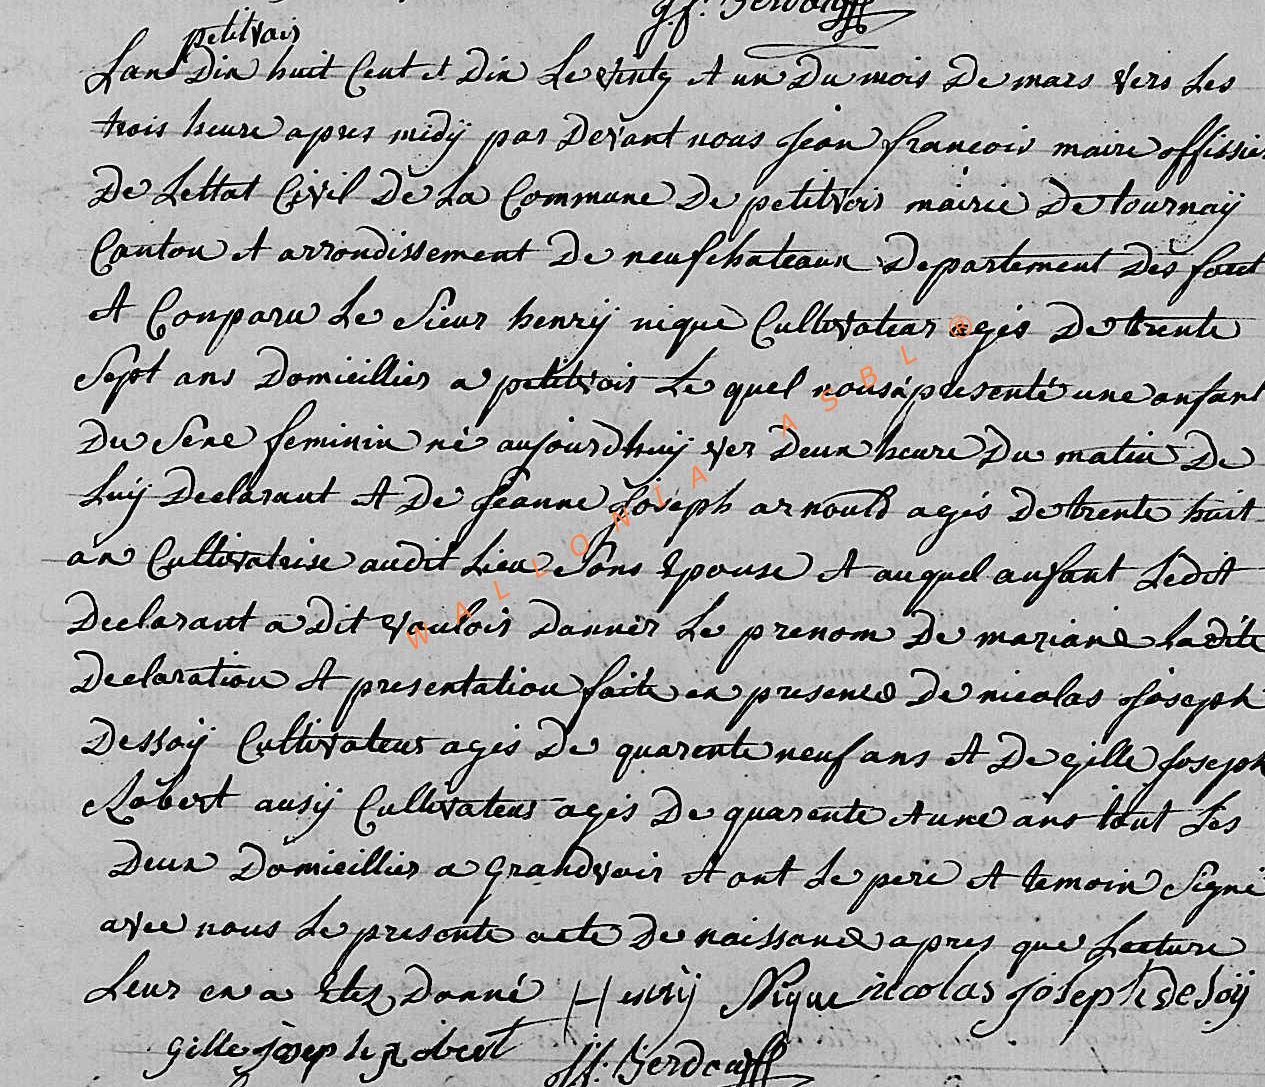 petitvoir
Lans Dix huit Cent et Dix Le vintg et un Du mois De mars vers Les
trois heure apres midÿ par Devant nous Jean françois maire offissier
De Lettat Civil De La Commune De petitvoir mairie De tournaÿ
Canton et arrondissement De neufchateaux Departement Des forét
A Comparu Le Sieur henrÿ nique Cultivateur agés De trente
Sept ans Domicillier a petitvoir Le quel nous a presenté une anfant
Du Sexe feminin né aujourdhuÿ ver Deux heure Du matin De
Luÿ Declarant et De Jeanne Joseph arnould agés De trente huit
an Cultivatrise audit Lieu Sons Epouse et auquel anfant Ledit
Declarant a Dit vouloir Donnér Le prenom De mariane Ladite
Declaration et presentation faite en presence De nicolas Joseph
Dessoÿ Cultivateur agés De quarente neuf ans et De gille Joseph
Robert ausÿ Cultivateur agés De quarente et une ans tout Les
Deux Domicillier a grandvoir et ont Le pere et temoin Signé
avec nous Le presente acte De naissance apres que Lecture
Leur en a Etez Donné Henrÿ Nique nicolas Joseph deSoÿ
gille Joseph Robert jf: Gerdouff
WALLONIA ASBL ©